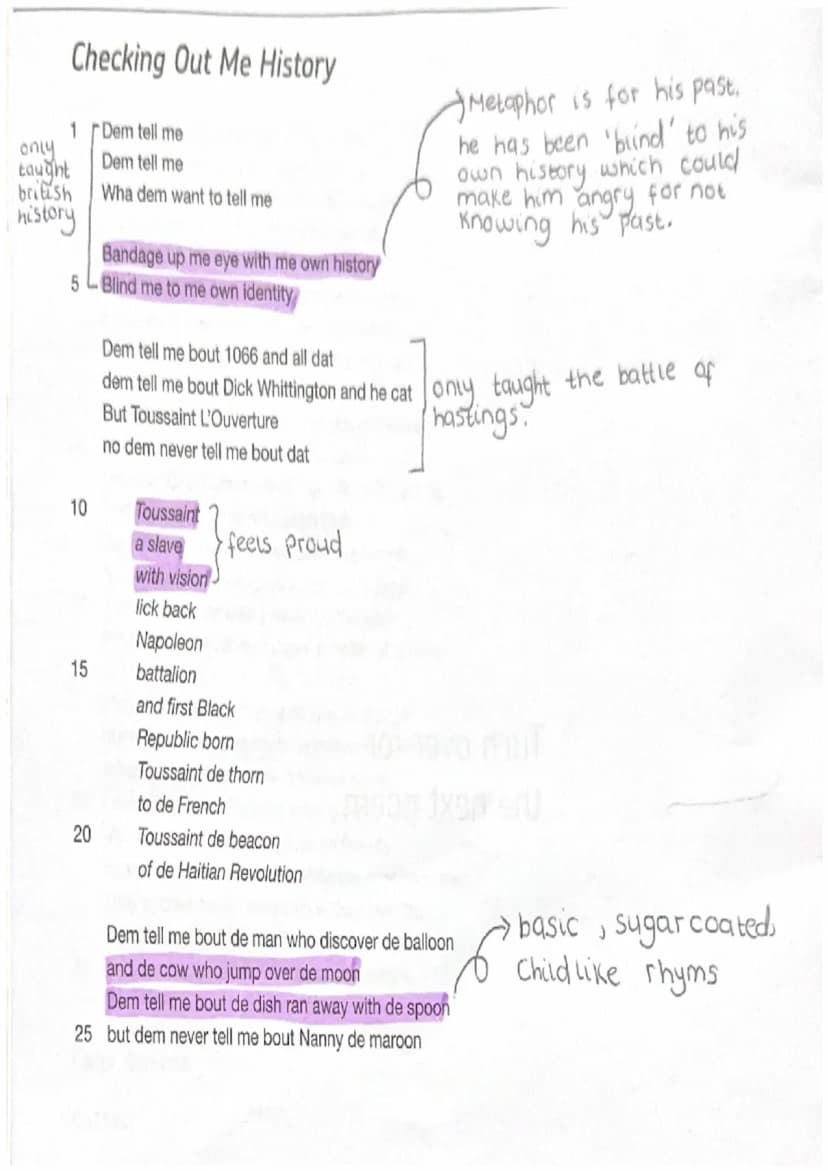 Checking Out Me History
1 Dem tell me
Dem tell me
Wha dem want to tell me
only
taught
british
history
Metaphor is for his past.
he has been 'blind' to his
own history which could
make him angry for not
knowing his past.
Bandage up me eye with me own history
5 Blind me to me own identity
Dem tell me bout 1066 and all dat
dem tell me bout Dick Whittington and he cat
But Toussaint L'Ouverture
no dem never tell me bout dat
only taught the battle of
hastings.
10 Toussaint
a slave
with vision
feels proud
lick back
Napoleon
15 battalion
and first Black
Republic born
Toussaint de thorn
to de French
20 Toussaint de beacon
of de Haitian Revolution
Dem tell me bout de man who discover de balloon
and de cow who jump over de moon
Dem tell me bout de dish ran away with de spoon
25 but dem never tell me bout Nanny de maroon
basic, sugarcoated,
Childlike rhyms